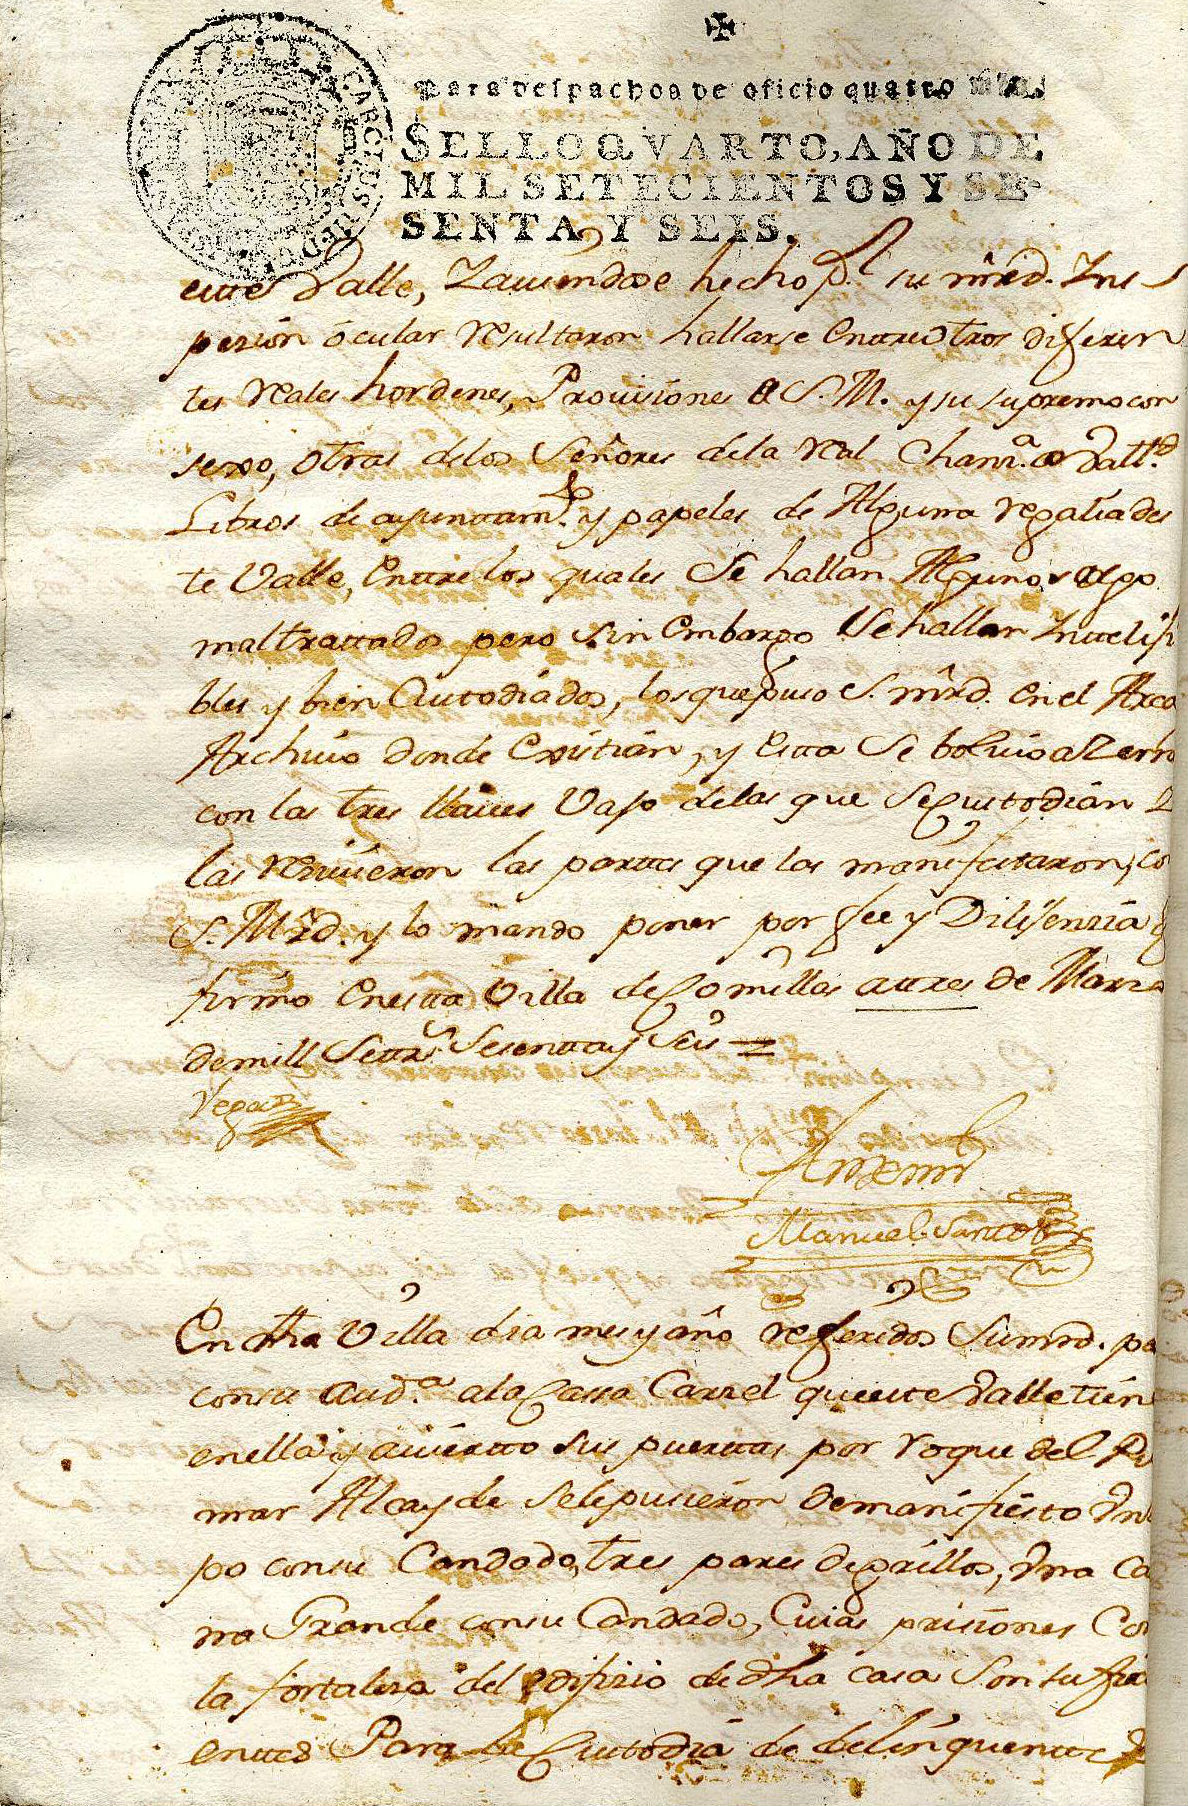 Para despachos de oficio quatro mrs.
SELLO QVARTO, AÑO DE
MIL SETECIENTOS Y SE-
SENTA Y SEIS.
este Valle, Zauiendose hecho pr. su mrd. Ins
pezion ócular resultaron hallarse Entre Otros diferen
tes reales hordenes, Provisiones de S. M. y su supremo con
sexo, otras delos Señores dela real Chanza. de Valld.
Libros de ayuntamto. y papeles de Alguna regalia des
te Valle, Entre los quales Se hallan Algunos algo
maltrattados pero Sin Embargo Se hallan Inteliji
bles y bien Custodiados, los que puso S. mrd. en el Arca
Archivo donde Existian, y Esta Se bolvio a Zerrar
con las tres llaves Vajo delas que Se Custodian
las reziuieron las partes que las manifestaron, con
S. Mrd. y lo mando poner por fee y Dilijenzia
firmo En esta Villa de Comillas a tres de Marzo
de mill Settos. Sesentta y Seis =
Vega
Antemi
Manuel Santos
En dha Villa dia mes y año referidos Su mrd. pa
con su Auda. a la Cassa Carzel que este Valle tiene
en ella y auierto sus puerttas por roque del
mar Alcayde Sele pusieron de manifiesto Vn
po con su Candado, tres pares de grillos, Vna Ca
na Grande con su Candado, Cuias prisiones Con
la fortaleza del edifizio de dha casa Son sufizi
enttes Para la Custodia de delinquenttes